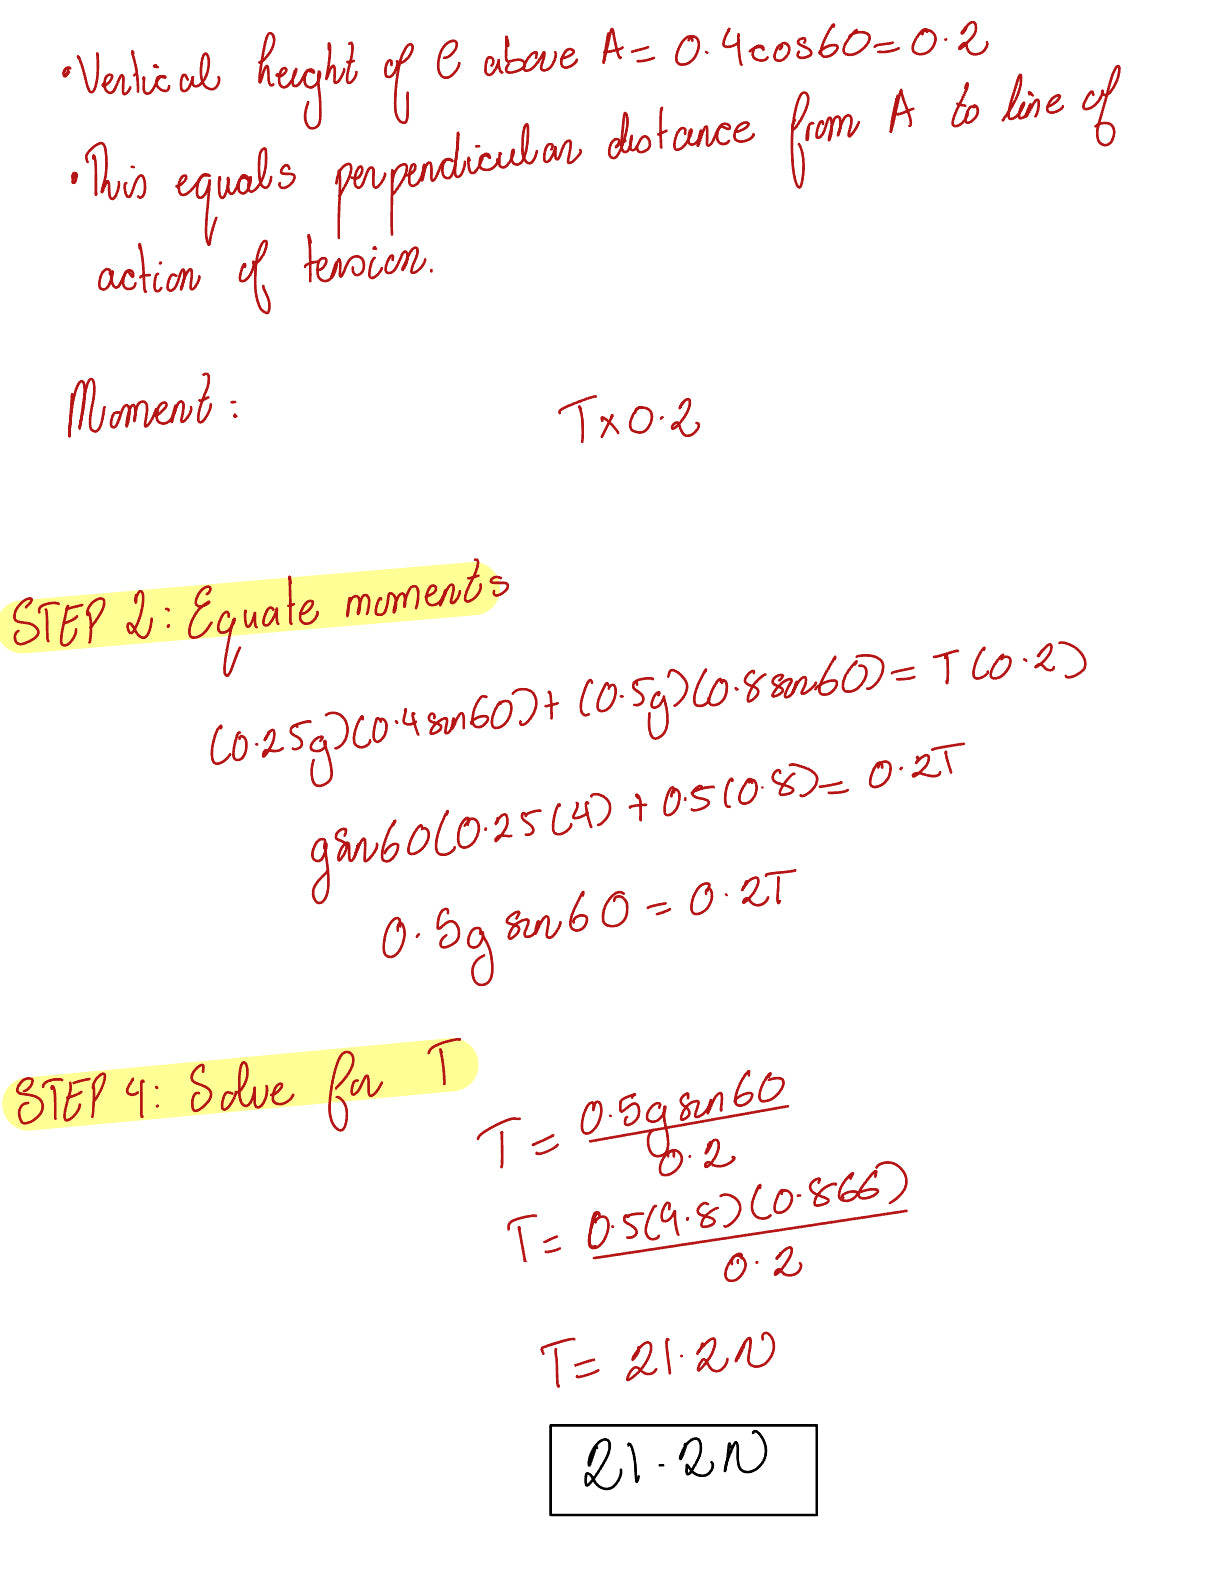 • Vertical height of C above A = 0.4cos60 = 0.2
• This equals perpendicular distance from A to line of
action of tension.
Moment: T×0.2
STEP 2: Equate moments
(0.25g)(0.4sin60) + (0.5g)(0.8sin60) = T(0.2)
gsin60(0.25(4) + 0.5(0.8) = 0.2T
0.5g sin60 = 0.2T
STEP 4: Solve for T
T = 0.5g sin60 / 0.2
T = 0.5(9.8)(0.866) / 0.2
T = 21.2N
21.2N